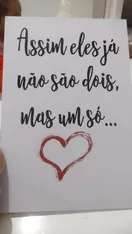 Assim eles já
não são dois,
mas um só...